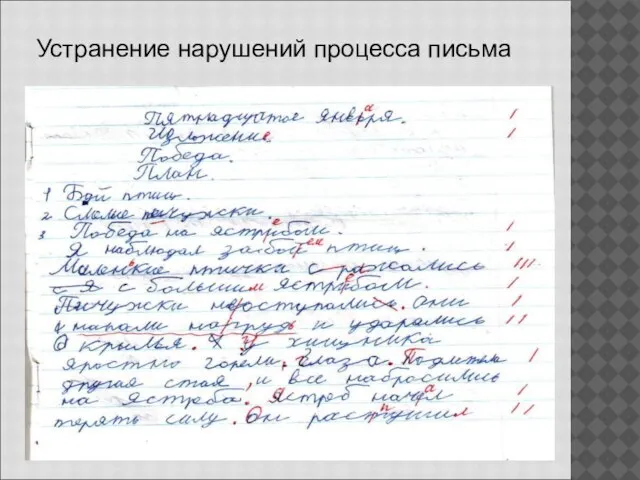 Устранение нарушений процесса письма
Пятнадцатое январря.
Изложение
Победа.
План.
1 Бой птиц.
2 Смелые пичужски.
3 Победа на ястребом.
Я наблюдал за боем птиц.
Маленькие птички с ражались
с я с большим ястребом.
Пичужски не оступались. они
нагрудь и ударялись
О крылья. У хищника
яростно горели глаза. Подлетела
другая стая, и все набросились
на ястреба. Ястреб начал
терять силу. Он распушил